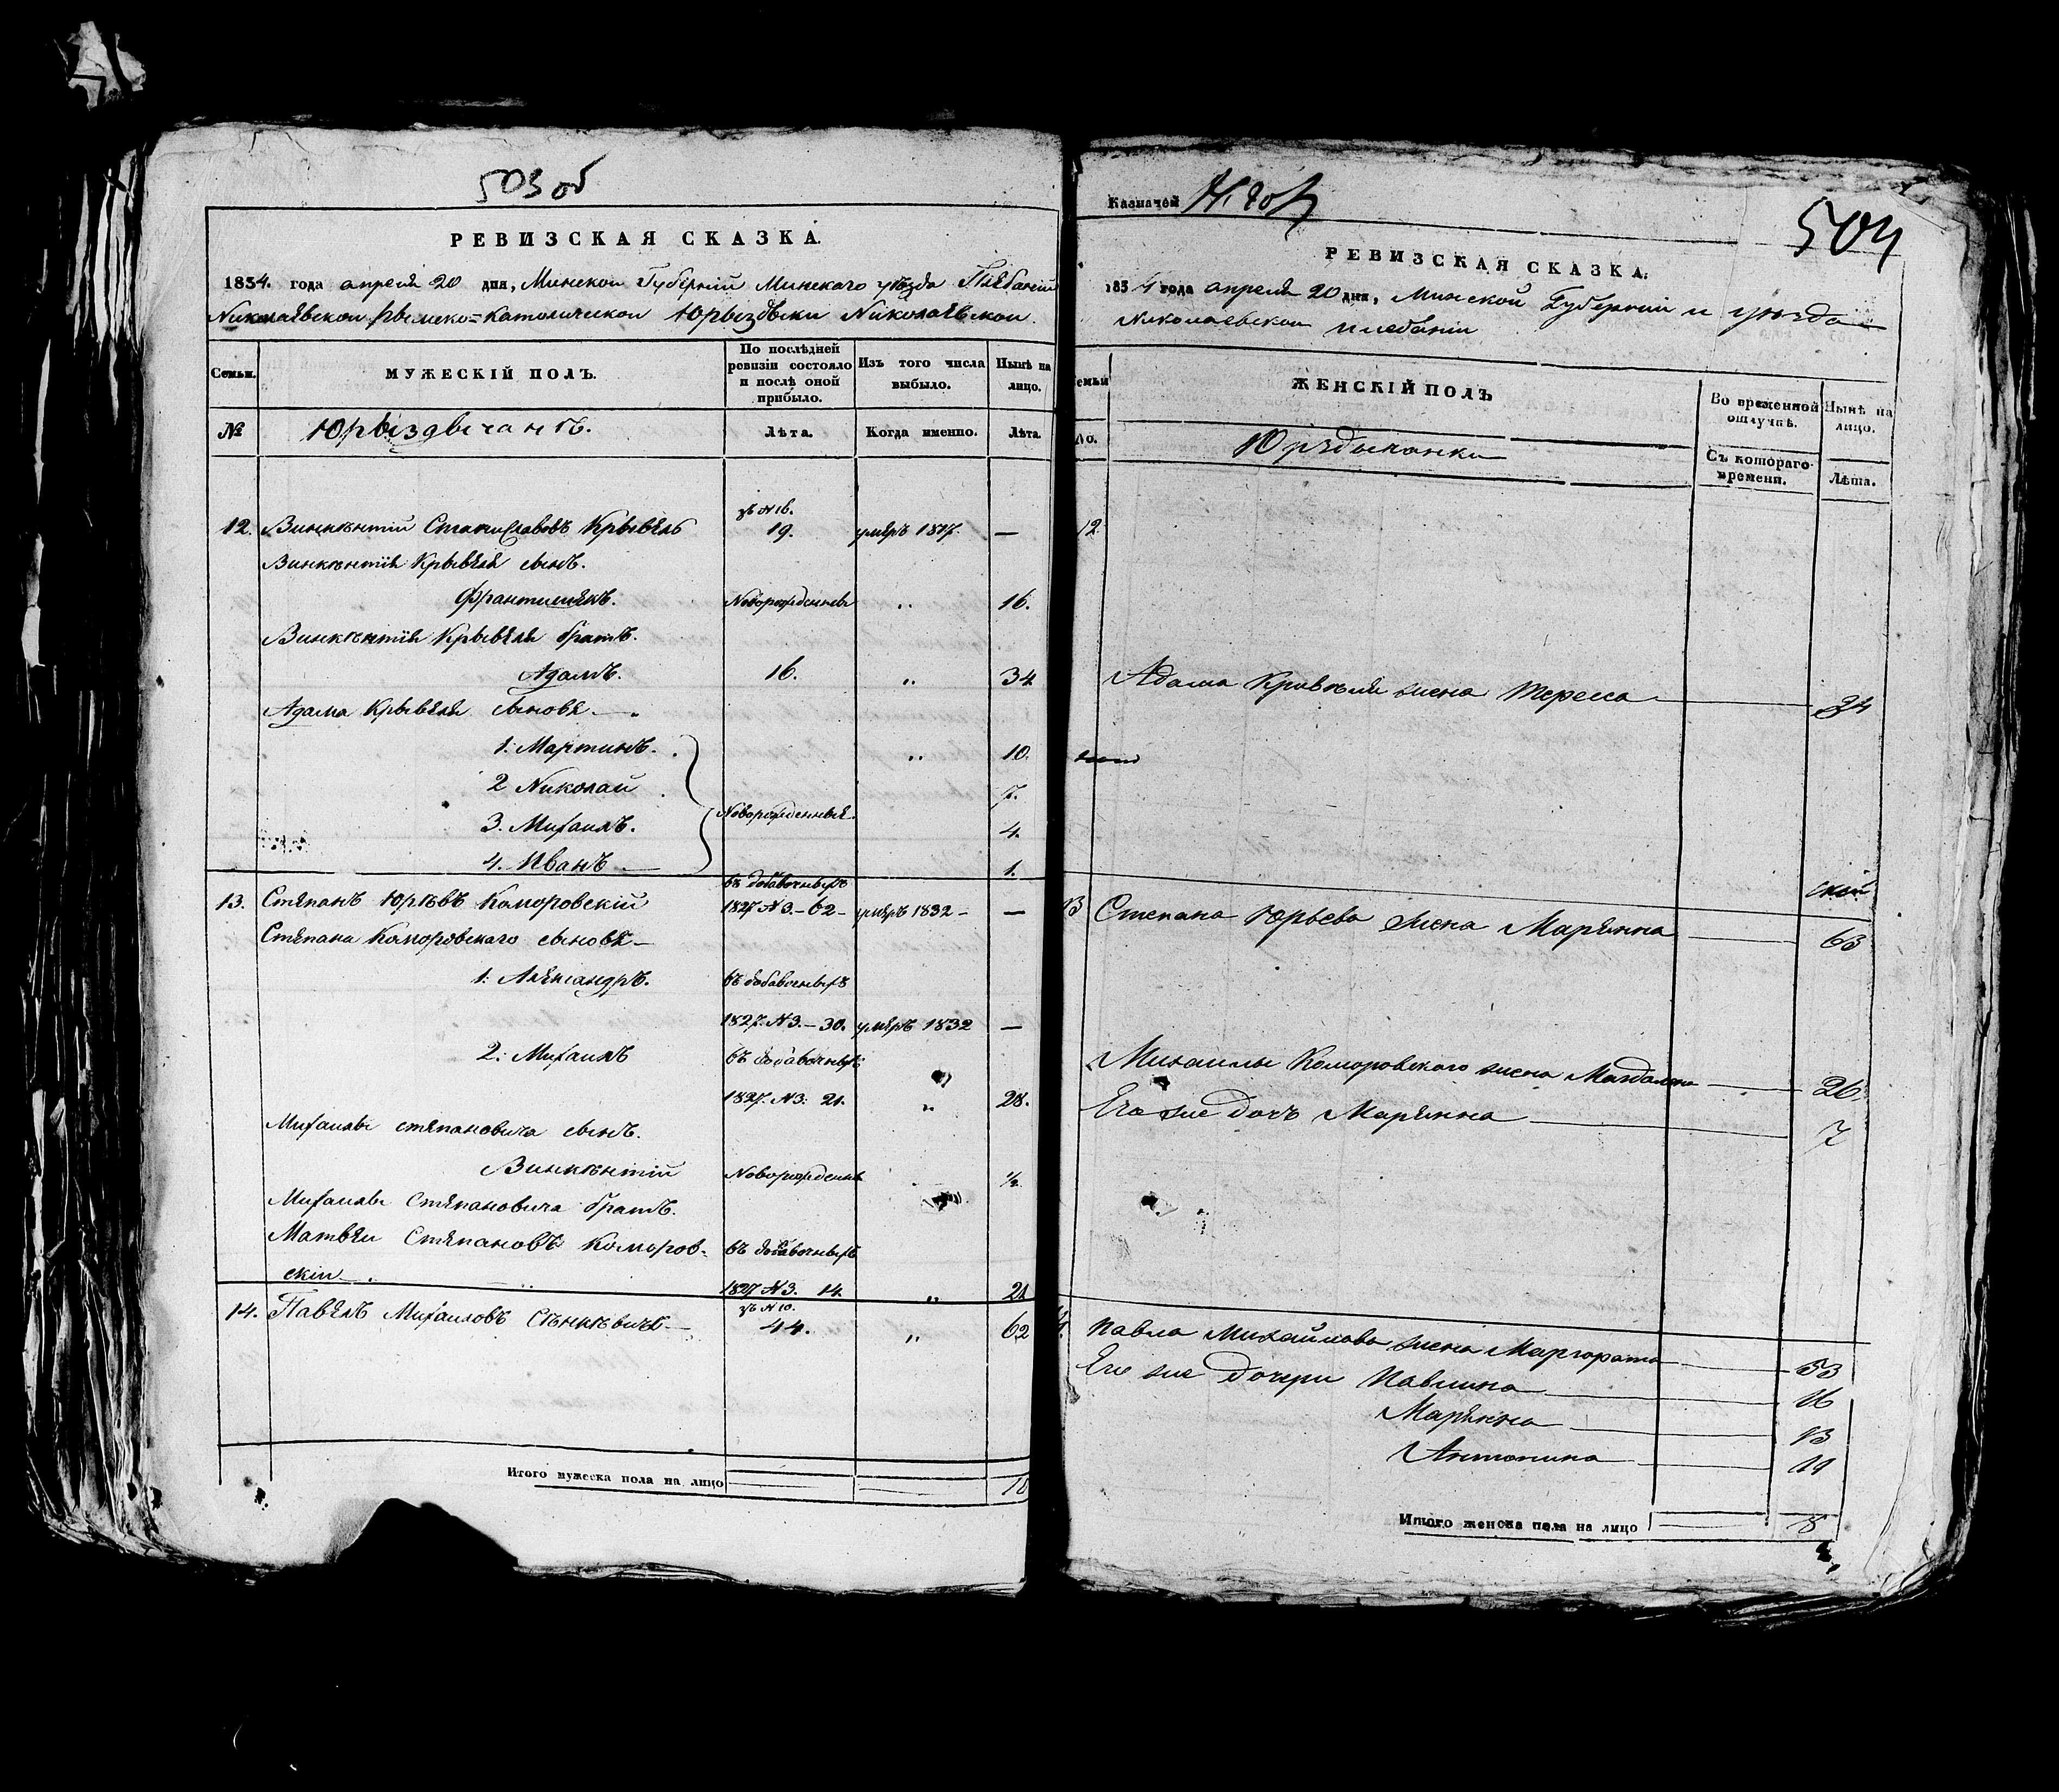 503 об
РЕВИЗСКАЯ СКАЗКА.
1834. года апреля 20 дня, Минской Губерніи Минского уѣзда Плебаніи
Николаевской Рымско=Католической Юрыздыки Николаевской.
Семьи.
МУЖЕСКІЙ ПОЛЪ.
По послѣдней ревизіи состояло и послѣ оной прибыло.
Изъ того числа выбыло.
Нынѣ на лицо.
№
Юрыздычанъ.
Лѣта.
Когда именно.
Лѣта.
зъ N 16.
12. Винкентій Станиславовъ Крывель 19. умеръ 1817. —
Винкентія Крывеля сынъ.
Францишекъ. Новорожденны „ 16.
Винкентія Крывеля братъ.
Адамъ. 16. „ 34
Адама Крывеля сыновя —
1. Мартинъ. „ 10.
2 Николай 7.
Новорожденныя
3. Михаилъ. 4.
4. Иванъ — 1.
въ добавочныхъ
13. Степанъ Юрьевъ Коморовскій 1827 N 3. — 62 — умеръ 1832 — —
Степана Коморовскаго сыновя —
1. Александръ. въ добавочныхъ
1827. N 3. — 30. умеръ 1832 —
2. Михаилъ въ добавочныхъ
1827. N 3. 21. „ 28.
Михаилы степановича сынъ.
Винкентій Новорожденны ½
Михаилы Степановича братъ.
Матвей Степановъ Коморов- въ добавочныхъ
скій — 1827 N 3. 14. „ 21
зъ N 10.
14. Павелъ Михаиловъ Сѣнкевичъ — 44. „ 62
Итого мужеска пола на лицо 10
Казначей
504
РЕВИЗСКАЯ СКАЗКА.
1834 года апреля 20 дня, Минской Губерніи и уѣзда
Николаевской плебаніи
Семьи
ЖЕНСКІЙ ПОЛЪ
Во временной отлучкѣ.
Нынѣ на лицо.
No.
Юрздыканки
Съ котораго времени.
Лѣта.
12
Адама Кривеля жена Тересса — 34
13 Степана Юрьева жена Марянна — 63
Михаилы Коморовского жена Магдалена — 26
Его же дочъ Марянна — 7
14. Павла Михайлова жена Маргарата — 53
Его же дочери Павлина — 16
Марянна — 13
Антонина — 11
Итого женска пола на лицо 8